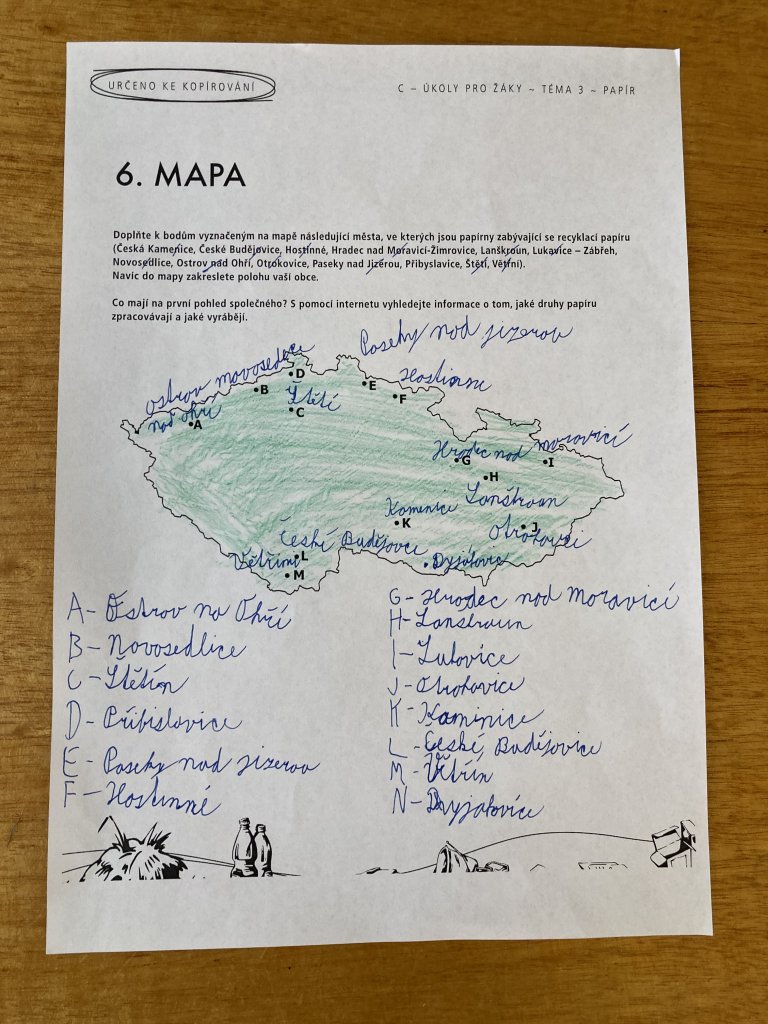 URČENO KE KOPÍROVÁNÍ
C – ÚKOLY PRO ŽÁKY ~ TÉMA 3 ~ PAPÍR
6. MAPA
Doplňte k bodům vyznačeným na mapě následující města, ve kterých jsou papírny zabývající se recyklací papíru
(Česká Kamenice, České Budějovice, Hostinné, Hradec nad Moravicí-Žimrovice, Lanškroun, Lukavice – Zábřeh,
Novosedlice, Ostrov nad Ohří, Otrokovice, Paseky nad Jizerou, Přibyslavice, Štětí, Větřní).
Navíc do mapy zakreslete polohu vaší obce.
Co mají na první pohled společného? S pomocí internetu vyhledejte informace o tom, jaké druhy papíru
zpracovávají a jaké vyrábějí.
Paseky nad jizerou
ostrov novosedlice
D
E
Hostinne
nad ohří
B
Štětí
F
A
C
Hradec nad moravicí
G
I
H
Lanškroun
Kamenice
K
Otrokovici
J
České Budějovce
L
Větřiní
M
Dyjákovic
A- Ostrov na Ohří
B- Novosedlice
C- Štětín
D- Přibislavice
E- Paseky nad jizerou
F- Hostinné
G- Hradec nad Moravicí
H- Lanskroun
I- Lukovice
J- Otrokovice
K- Kaminice
L- České Budějovice
M- Větřín
N- Dyjakovice